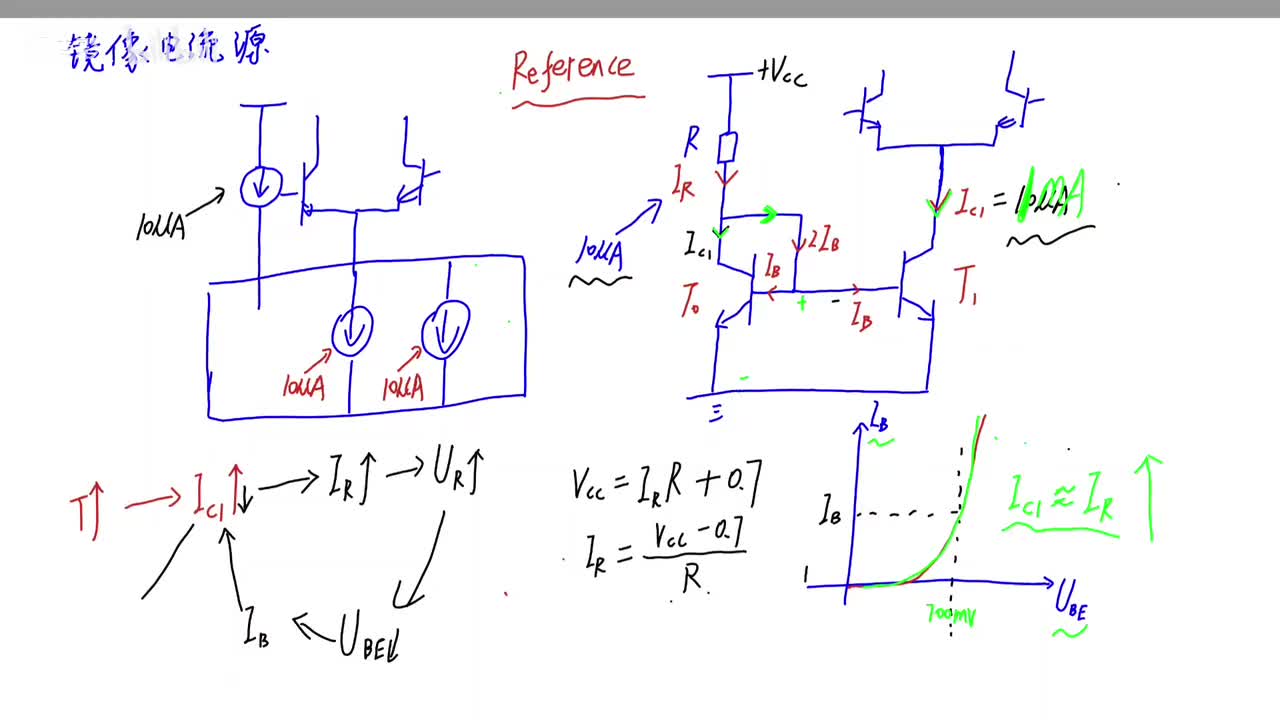 镜像电流源
Reference
+Vcc
R
I_R
10μA
10μA
I_C1
2I_B
I_B
I_B
+
-
-
T₀
T₁
I_C1 = 1mA
10μA
10μA
T↑ → I_C1↑↓ → I_R↑ → U_R↑
I_B ← U_BE↓
Vcc = I_R R + 0.7
I_R = (Vcc - 0.7) / R
I_B
I_B
700mV
U_BE
I_C1 ≈ I_R ↑